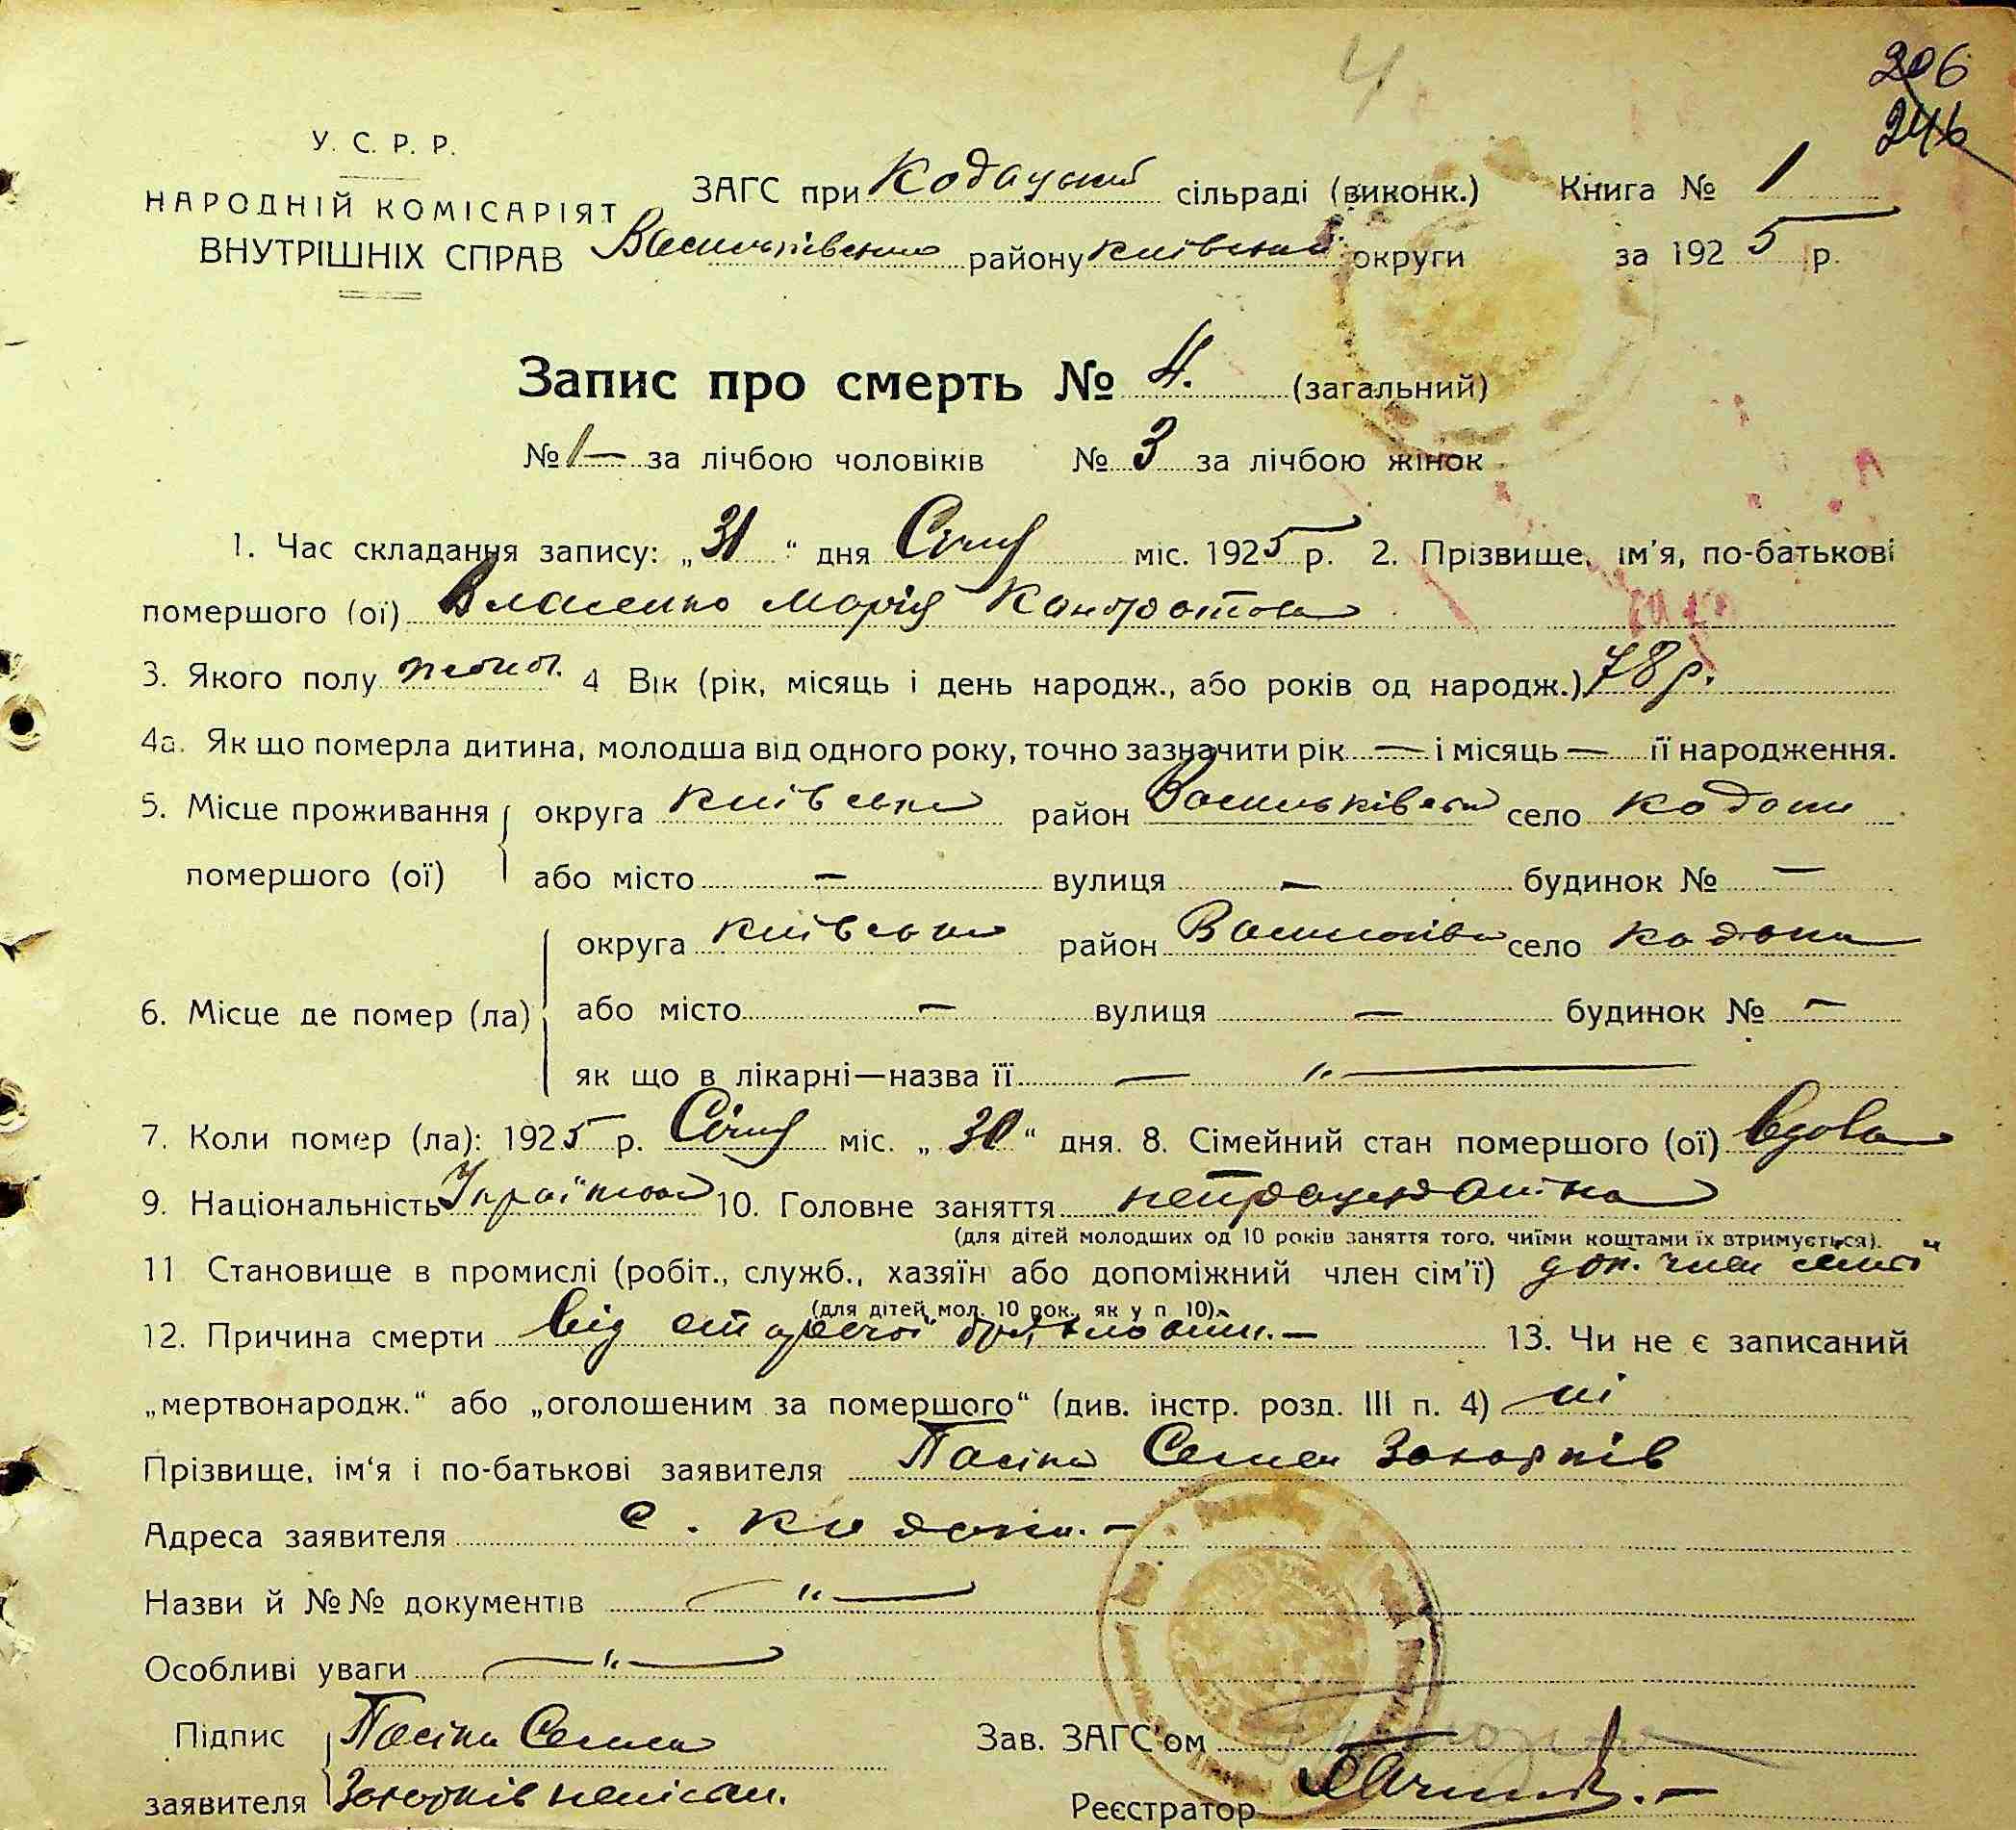 4
206
246
У. С. Р. Р.
НАРОДНІЙ КОМІСАРІЯТ
ВНУТРІШНІХ СПРАВ
ЗАГС при Кодацький сільраді (виконк.) Книга № 1
Васильківський району Київський округи за 1925 р.
Запис про смерть № 4. (загальний)
№ 1— за лічбою чоловіків № 3 за лічбою жінок
1. Час складання запису: „31“ дня Січня міс. 1925 р. 2. Прізвище, ім'я, по-батькові
помершого (ої) Власенко Марія Кондратова
3. Якого полу жіноч. 4 Вік (рік, місяць і день народж., або років од народж.) 78 р.
4а. Як що померла дитина, молодша від одного року, точно зазначити рік — і місяць — її народження.
5. Місце проживання округа Київська район Васильківськ село Кодаки
помершого (ої) або місто — вулиця — будинок № —
округа Київська район Васильків село Кодаки
6. Місце де помер (ла) або місто — вулиця — будинок № —
як що в лікарні—назва її — „ —
7. Коли помер (ла): 1925 р. Січня міс. „30“ дня. 8. Сімейний стан помершого (ої) вдова
9. Національність Українка 10. Головне заняття непрацездатна
(для дітей молодших од 10 років заняття того, чиїми коштами їх втримується).
11 Становище в промислі (робіт., служб., хазяїн або допоміжний член сім'ї) доп. член семьї
(для дітей мол. 10 рок., як у п 10).
12. Причина смерти від старечої дряхлости. — 13. Чи не є записаний
„мертвонародж.“ або „оголошеним за помершого“ (див. інстр. розд. III п. 4) ні
Прізвище, ім'я і по-батькові заявителя Пасіка Семен Захарків
Адреса заявителя с. Кодаки. —
Назви й №№ документів — „ —
Особливі уваги — „ —
Підпис Пасіка Семен
заявителя Захарків неписьм.
Зав. ЗАГС'ом
Реєстратор